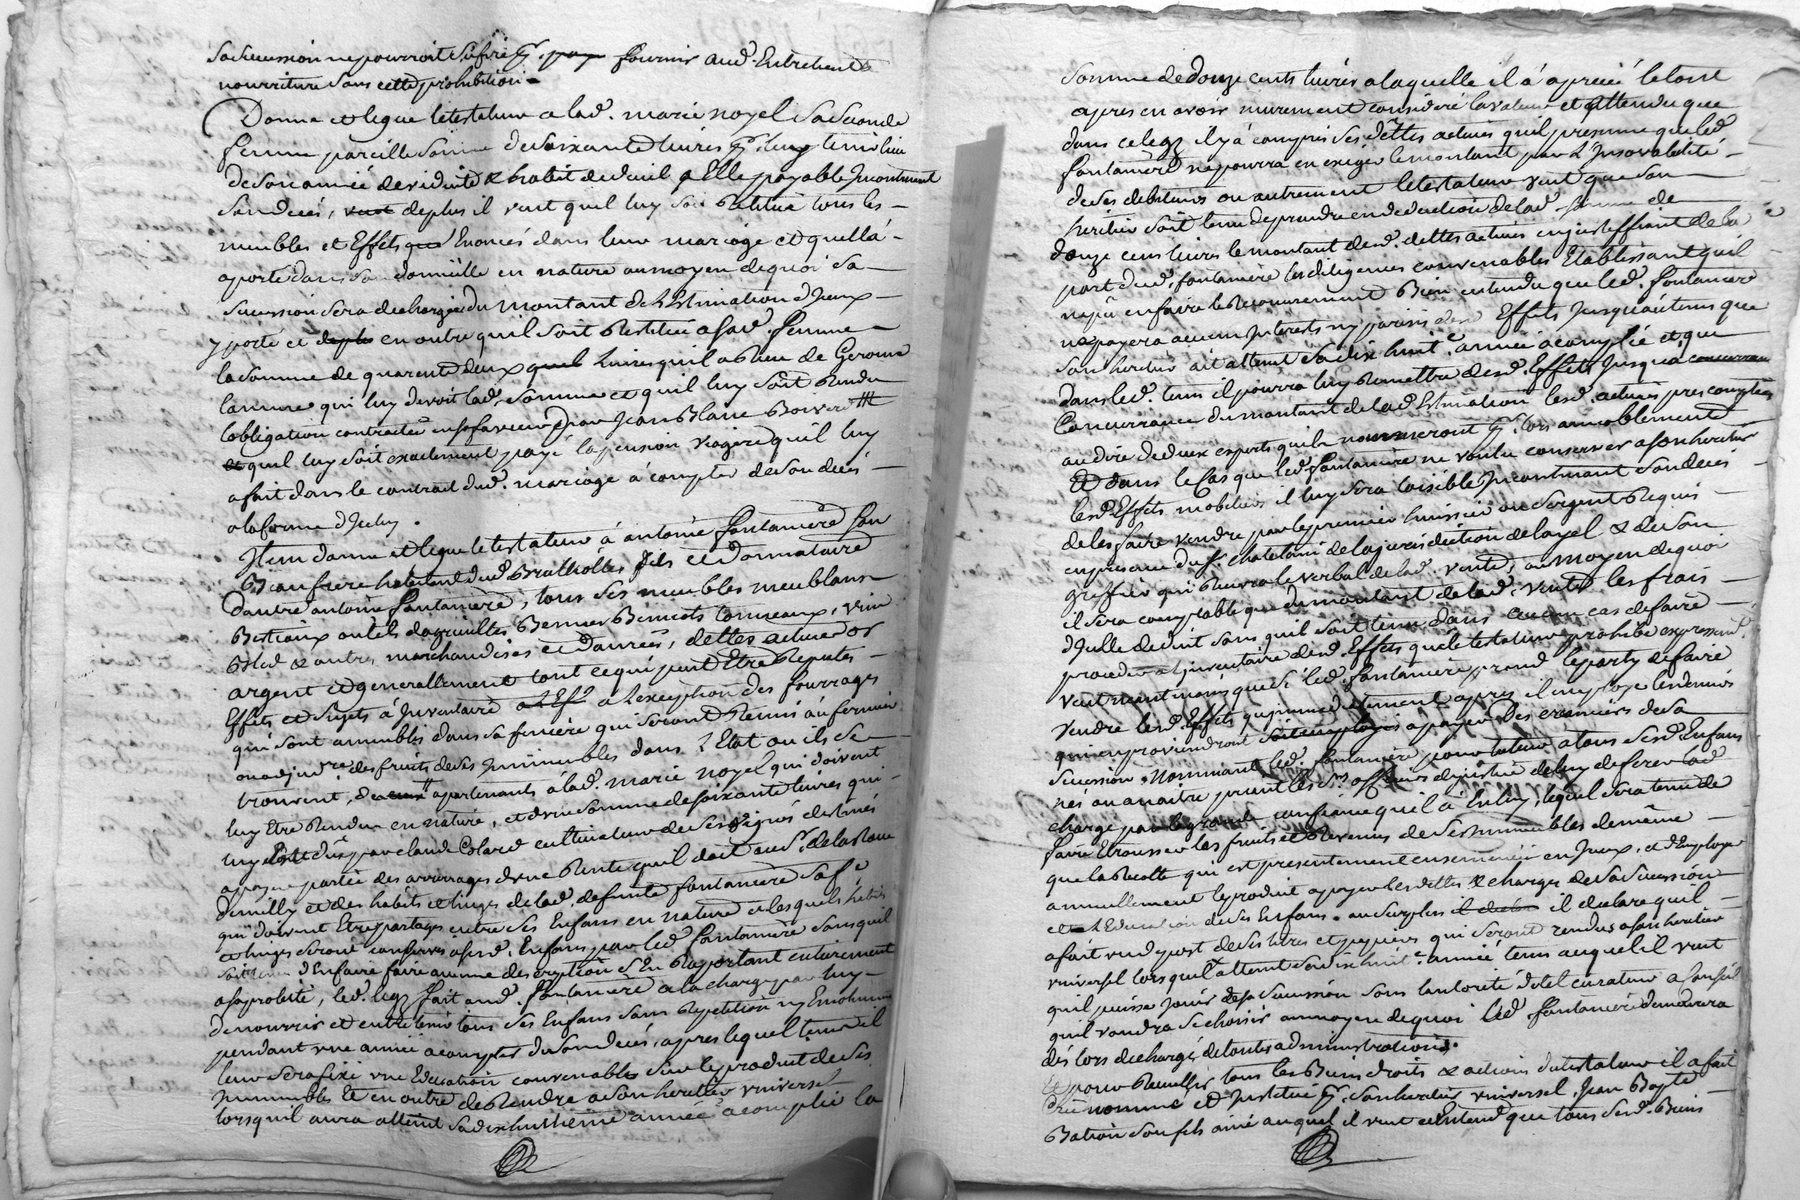 Sa succession ne pourroit sufire pr. paye fournir aud. Entretient &
nourriture sans cette prohibition
Donne et legue le testateur a lad. marie noyel sa seconde
femme pareille somme de soixante livres pr. luy tenir lieu
de son année de viduité & habit de deuil a Elle payable Incontinent
son decés, veut de plus il veut quil luy soit Restitué tous les
meubles et Effets que Enoncés dans leur mariage et quella
aporté dans son domicille en nature au moyen de quoi sa
succession sera dechargée du montant de lEstimation d'Iceux
y porté et de plus en outre quil soit Restitué a sad. femme
la somme de quarente deux quil livres quil a Reçu de Gerome
lamure qui luy devoit lad. somme et quil luy soit Rendu
lobligation contractée en sa faveur par Jean Blanc
et quil luy soit exactement payé la pension viagere quil luy
a fait dans le contrat dud. mariage à compter de son decés
a la forme d'Icelui.
Item donne et legue le testateur à antoine fontanière son
Beaufrere habitant dud. Brulholles fils et donnataire
dautre antoine fontanière, tous ses meubles meublans
Bestiaux outils dagriculture Bennes Bennots tonneaux, vin
Bled & autres marchandises et danrées, dettes actives or
argent et generallement tout ce qui peut Etre Reputés
Effets et sujets à Inventaire a lexception des fourrages
qui sont amenblés dans sa feniere qui seront Remis au fermier
ou adjudre. des fruits de ses Immeubles dans l'Etat ou ils se
trouvent, de ceux apartenants à lad. marie noyel qui doivent
luy Etre Rendu en nature, et d'une somme de soixante livres qui
luy est dûe par claude Colard cultivateur de ses vignes destinés
a payer partie des arrerages d'une Rente quil doit au sr. de la Roue
demilly et des habits et linges de lad. defunte fontaniere sa fe.
qui doivent Etre partagés entre ses Enfans en nature et lesquels habits
et linges seront conservés a sesd. Enfans par led. fontanière sans quil
soit tenu d'En faire faire aucune description s'En Raportant entierement
a sa probité, led. legz fait aud. fontaniere a la charge par luy
de nourrir et entretenir tous ses Enfans sans Repetition ny Emolument
pendant une année a compter du son decés, apres lequel tems il
leur sera fixé une Education convenable sur le produit de ses
Immeubles & en outre de Rendre a son heritier universel
lorsquil aura atteint sa dixhuitieme année acomplie la
somme de douze cents livres a laquelle il a aprecié le tout
apres en avoir murement consideré la valeur et attendu que
dans ce legz il y a compris ses dettes actives quil presume que led.
fontaniere ne pourra en exiger le montant par l'Insovabilité
de ses debiteurs ou autrement le testateur veut que son
heritier soit tenu de prendre en deduction de lad. somme de
douze cens livres le montant desd. dettes actives en justiffiant de la
part dud. fontaniere les diligences convenables Etablissant quil
n'a pû en faire le Recouvrement Bien entendu que led. fontaniere
ne payera aucun Interests ny jouis desd. Effets jusqu'au tems que
son heritier ait atteint sa dix huite. année acomplie et que
dans led. tems il pourra luy Remettre desd. Effets jusqua concurrance
Concurrance du montant de lad. Estimation lesd. actives pres comptées
au dire de deux experts quils nommeront pr. lors amiablement
Et dans le Cas que led. fontaniere ne voulu conserver a son heritier
lesd. Effets mobiliers il luy sera loisible Incontinant son decés
de les faire vendre par le premier huissier ou sergent Requis
en presance du sr. chatelain de la jurisdiction de layel & de son
greffier qui Recevra le verbal de lad. vente, au moyen de quoi
il sera comptable que du montant de lad. vente les frais
d'Icelle deduit sans quil soit tenu dans aucun cas de faire
proceder a l'inventaire desd. Effets que le testateur prohibe expressement
veut neantmoins que si led. fontaniere prend le party de faire
vendre lesd. Effets quimmediatement après il employe les deniers
qui en proviendront a payer les creanciers de sa
succession. Nommant led. fontaniere pour tuteur a tous sesd. Enfans
nés ou a naitre priant les srs. officiers de justice de luy deferer lad.
charge par la grande confiance quil a en luy, lequel sera tenu de
faire Etrousser les fruits et Revenus de ses Immeubles de même
que la Recolte qui est presentement ensemencée en Iceux, et d'Employer
annuellement le produit a payer les dettes & charges de sa succession
et lEducation de ses Enfans. au surplus il declare quil
a fait un depost de ses titres et papiers qui seront rendus a son heritier
universel lorsquil atteint sa dixhuite. année tems auquel il veut
quil puisse jouir de sa succession sous lautorité dotel curateur a conseil
quil voudra se choisir au moyen de quoi led. fontanière demeurera
dés lors dechargé de toutes administrations.
Et pour Recuillir tous les Biens droits & actions du testateur il a fait
crée nommé et Institué pr. son heritier universel Jean Bapte.
Bation son fils ainé auquel il veut et Entend que tous sesd. Biens